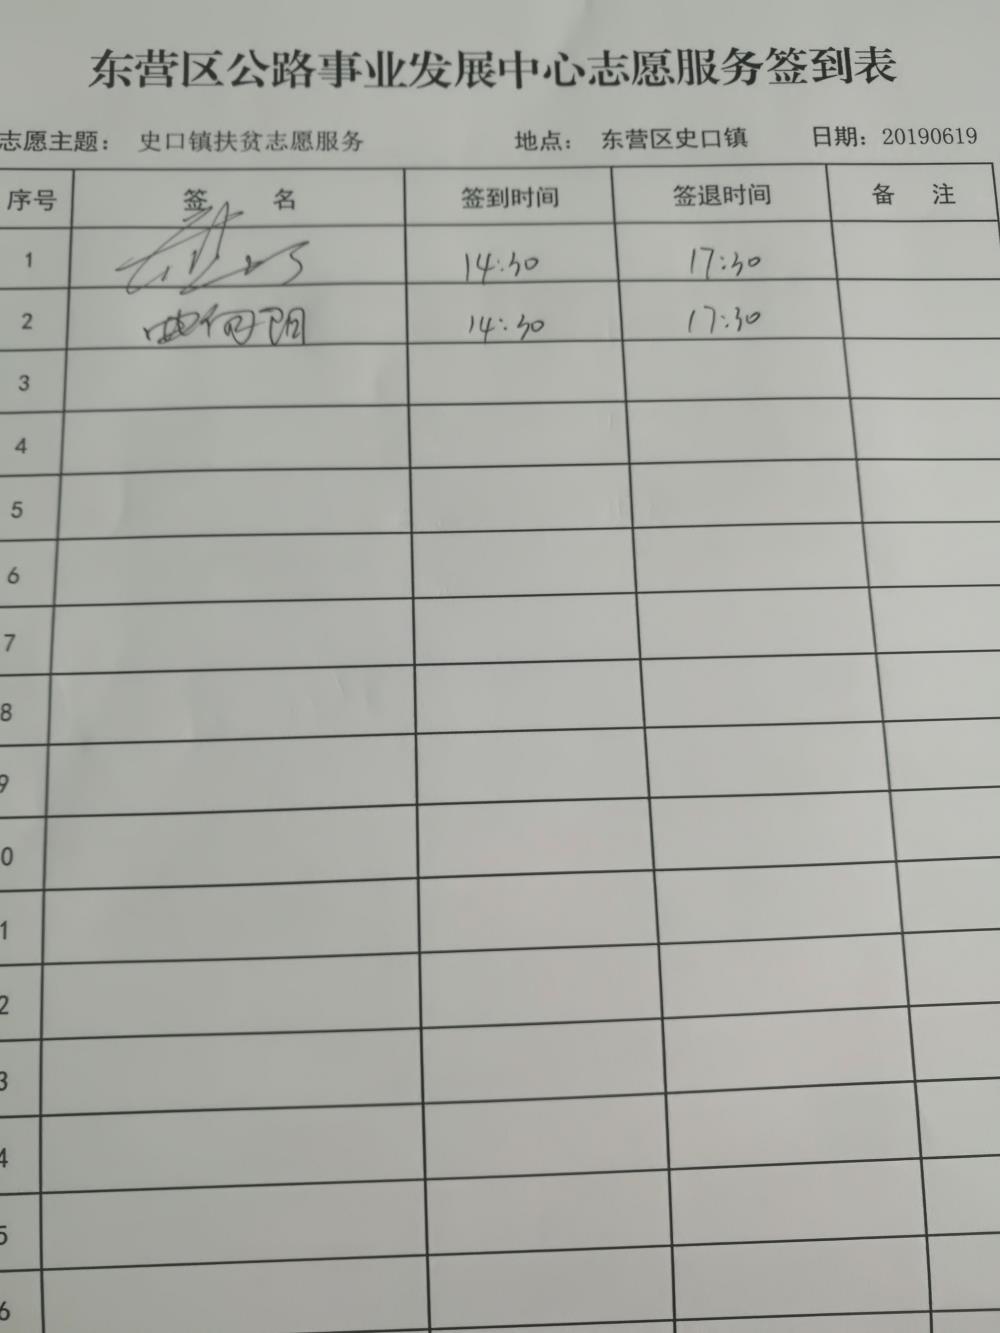 东营区公路事业发展中心志愿服务签到表
志愿主题： 史口镇扶贫志愿服务 地点： 东营区史口镇 日期：20190619
序号 签 名 签到时间 签退时间 备 注
1 14:30 17:30
2 14:30 17:30
3
4
5
6
7
8
9
0
1
2
3
4
5
6